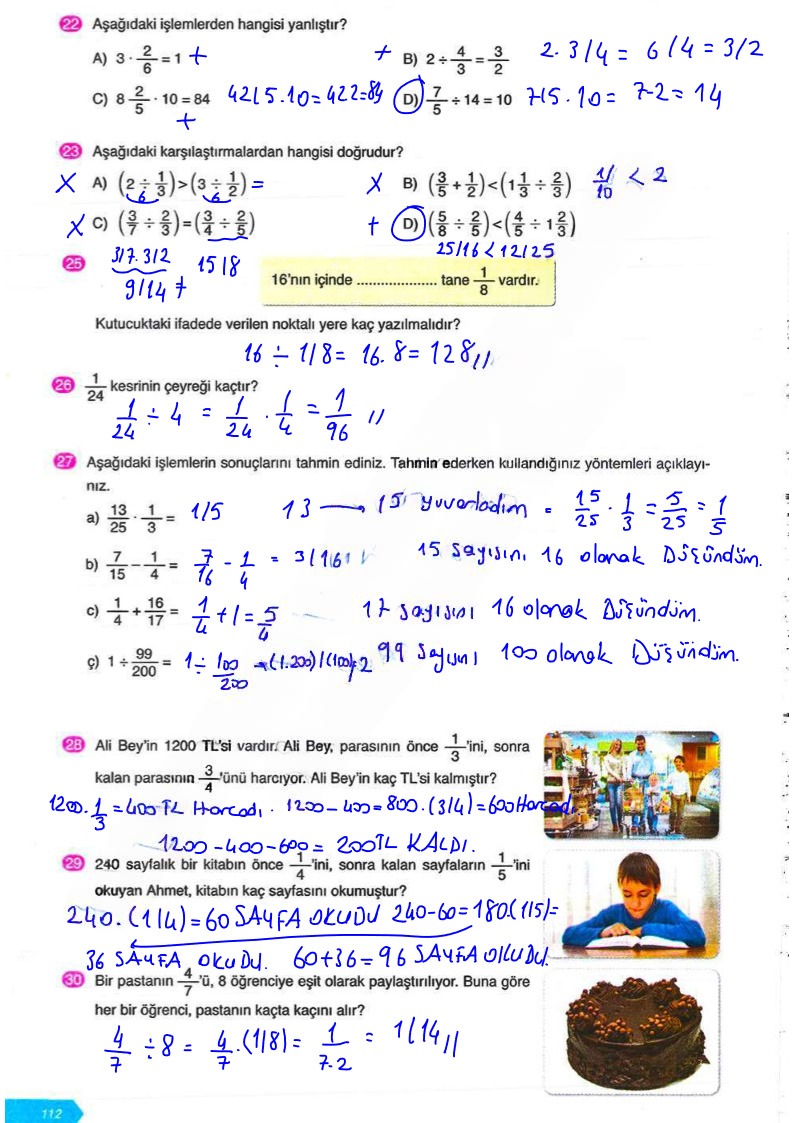 22 Aşağıdaki işlemlerden hangisi yanlıştır?
A) 3 · 2/6 = 1 + + B) 2 ÷ 4/3 = 3/2 2. 3/4 = 6/4 = 3/2
C) 8 2/5 · 10 = 84 42/5.10=422=84 D) 7/5 ÷ 14 = 10 7/5 . 10 = 7-2 = 14
+
23 Aşağıdaki karşılaştırmalardan hangisi doğrudur?
X A) (2 ÷ 1/3) > (3 ÷ 1/2) = X B) (3/5 + 1/2) < (1 1/3 ÷ 2/3) 11/10 < 2
6 6
X C) (3/7 ÷ 2/3) = (3/4 ÷ 2/5) + D) (5/8 ÷ 2/5) < (4/5 ÷ 1 2/3)
3/7. 3/2 15/8 25/16 < 12/25
9/14 ≠
25 16'nın içinde .................... tane 1/8 vardır.
Kutucuktaki ifadede verilen noktalı yere kaç yazılmalıdır?
16 ÷ 1/8 = 16. 8 = 128//
26 1/24 kesrinin çeyreği kaçtır?
1/24 ÷ 4 = 1/24 . 1/4 = 1/96 //
27 Aşağıdaki işlemlerin sonuçlarını tahmin ediniz. Tahmin ederken kullandığınız yöntemleri açıklayı-
nız.
a) 13/25 · 1/3 = 1/5 13 → 15 yuvarladım = 15/25 . 1/3 = 5/25 = 1/5
b) 7/15 - 1/4 = 7/16 - 1/4 = 3/16 15 sayısını 16 olarak Düşündüm.
c) 1/4 + 16/17 = 1/4 + 1 = 5/4 17 sayısını 16 olarak Düşündüm.
ç) 1 ÷ 99/200 = 1 ÷ 100/200 = (1.200)/(100)=2 99 sayısını 100 olarak Düşündüm.
28 Ali Bey'in 1200 TL'si vardır. Ali Bey, parasının önce 1/3'ini, sonra
kalan parasının 3/4'ünü harcıyor. Ali Bey'in kaç TL'si kalmıştır?
1200. 1/3 = 400 TL Harcadı. 1200-400=800.(3/4)=600Harcadı
1200-400-600= 200TL KALDI.
29 240 sayfalık bir kitabın önce 1/4'ini, sonra kalan sayfaların 1/5'ini
okuyan Ahmet, kitabın kaç sayfasını okumuştur?
240.(1/4)=60 SAYFA OKUDU 240-60=180.(1/5)=
36 SAYFA OKUDU. 60+36=96 SAYFA OKUDU.
30 Bir pastanın 4/7'ü, 8 öğrenciye eşit olarak paylaştırılıyor. Buna göre
her bir öğrenci, pastanın kaçta kaçını alır?
4/7 ÷ 8 = 4/7.(1/8) = 1/7.2 = 1/14//
112